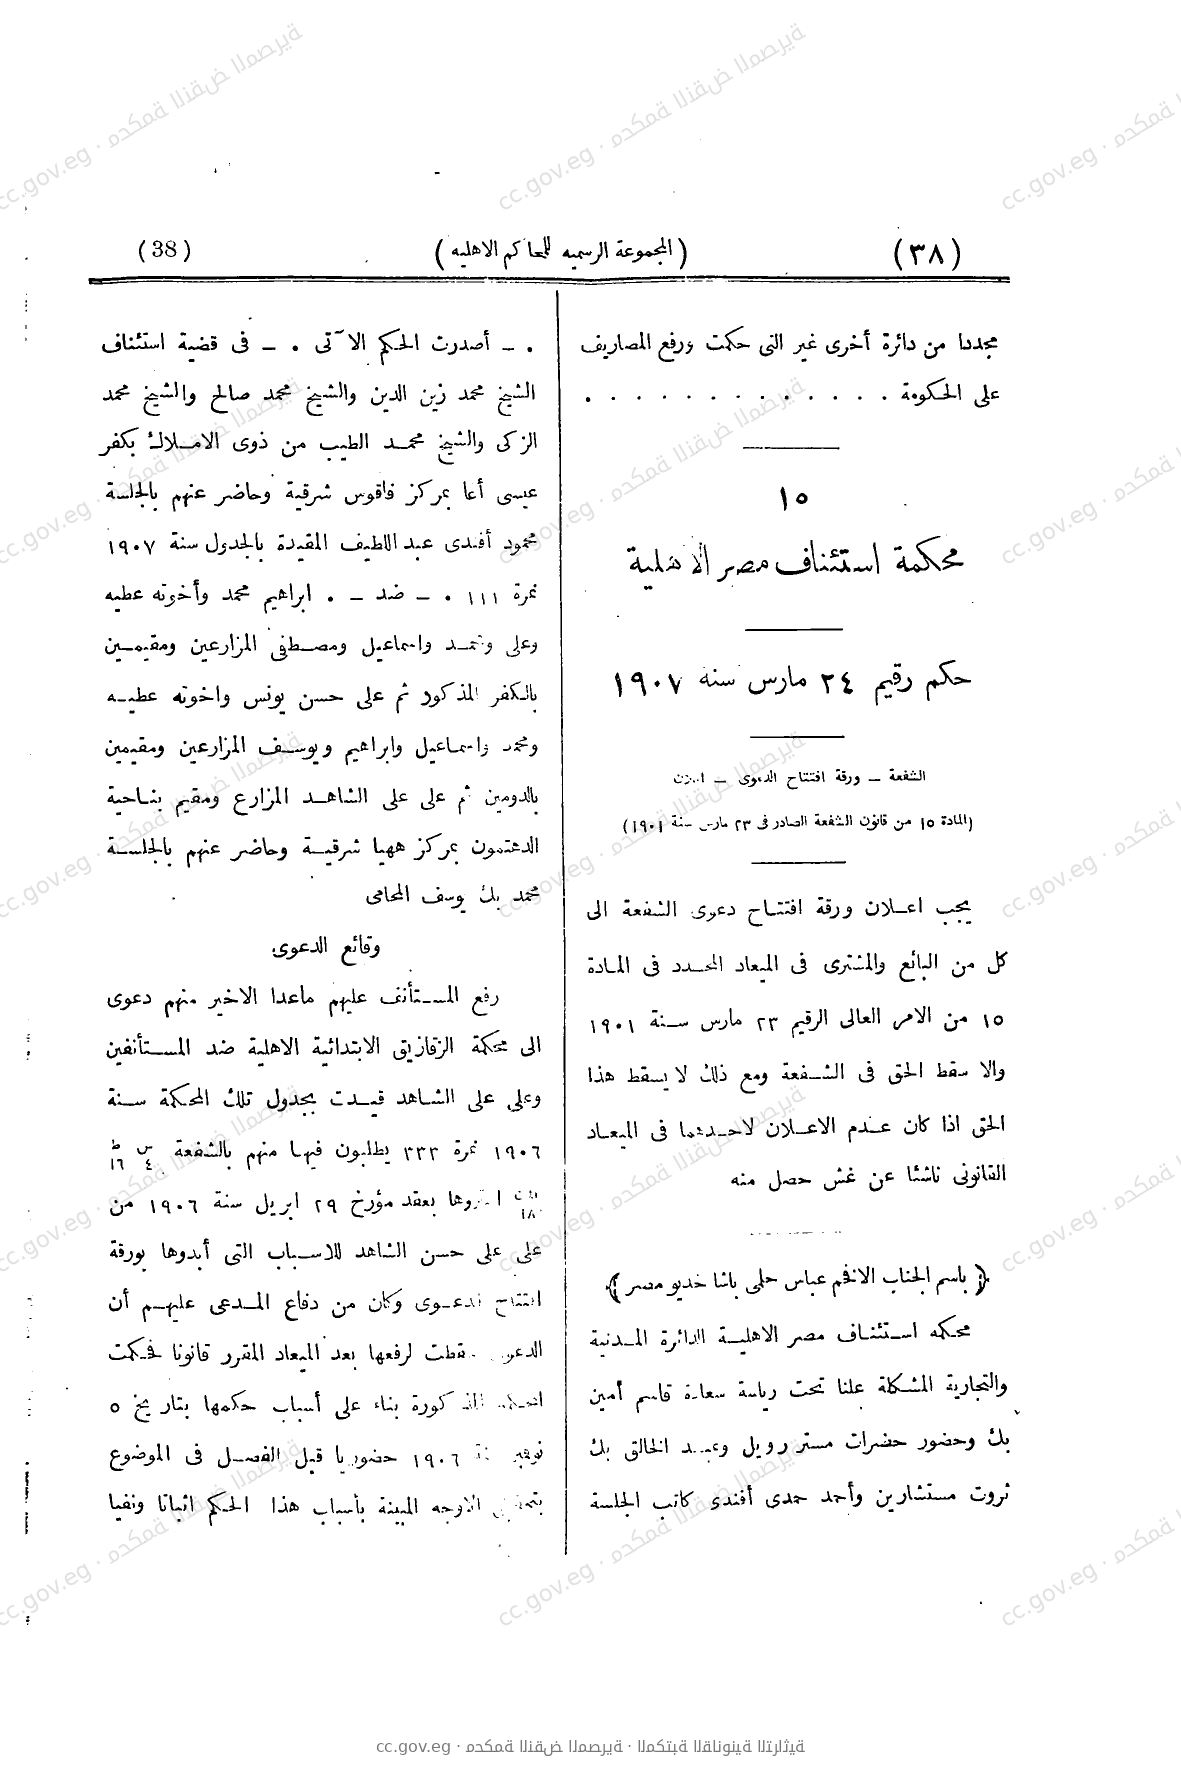 (٣٨)
(المجموعة الرسميه للمحاكم الاهليه)
(38)
مجددا من دائرة أخرى غير التى حكمت ورفع المصاريف
على الحكومة . . . . . . . . . . . .
١٥
محكمة استئناف مصر الاهلية
حكم رقيم ٢٤ مارس سنه ١٩٠٧
الشفعة – ورقة افتتاح الدعوى –
(المادة ١٥ من قانون الشفعة الصادر فى ٢٣ مارس سنة ١٩٠١)
يجب اعلان ورقة افتتاح دعوى الشفعة الى
كل من البائع والمشترى فى الميعاد المحدد فى المادة
١٥ من الامر العالى الرقيم ٢٣ مارس سنة ١٩٠١
والا سقط الحق فى الشفعة ومع ذلك لا يسقط هذا
الحق اذا كان عدم الاعلان لاحدهما فى الميعاد
القانونى ناشئا عن غش حصل منه
﴿ باسم الجناب الافخم عباس حلمى باشا خديو مصر ﴾
محكمه استئناف مصر الاهلية الدائرة المدنية
والتجارية المشكلة علنا تحت رياسة سعادة قاسم أمين
بك وحضور حضرات مستر رويل وعبد الخالق بك
ثروت مستشارين وأحمد حمدى أفندى كاتب الجلسة
. – أصدرت الحكم الآتى . – فى قضية استئناف
الشيخ محمد زين الدين والشيخ محمد صالح والشيخ محمد
الزكى والشيخ محمد الطيب من ذوى الاملاك بكفر
عيسى أغا بمركز فاقوس شرقية وحاضر عنهم بالجلسة
محمود أفندى عبد اللطيف المقيدة بالجدول سنة ١٩٠٧
نمرة ١١١ . – ضد – . ابراهيم محمد وأخوته عطيه
وعلى ومحمد واسماعيل ومصطفى المزارعين ومقيمين
بالكفر المذكور ثم على حسن يونس واخوته عطيه
ومحمد واسماعيل وابراهيم ويوسف المزارعين ومقيمين
بالدومين ثم على على الشاهد المزارع ومقيم بناحية
الدهتمون بمركز ههيا شرقية وحاضر عنهم بالجلسة
محمد بك يوسف المحامى
وقائع الدعوى
رفع المستأنف عليهم ماعدا الاخير منهم دعوى
الى محكمة الزقازيق الابتدائية الاهلية ضد المستأنفين
وعلى على الشاهد قيدت بجدول تلك المحكمة سنة
١٩٠٦ نمرة ٣٣٣ يطلبون فيها منهم بالشفعة ٤ س ١٦ ط
١٨ اشتروها بعقد مؤرخ ٢٩ ابريل سنة ١٩٠٦ من
على على حسن الشاهد للاسباب التى أبدوها بورقة
افتتاح الدعوى وكان من دفاع المدعى عليهم أن
الدعوى سقطت لرفعها بعد الميعاد المقرر قانونا فحكمت
المحكمة المذكورة بناء على أسباب حكمها بتاريخ ٥
نوفمبر سنة ١٩٠٦ حضوريا قبل الفصل فى الموضوع
بتحقيق الاوجه المبينة بأسباب هذا الحكم اثباتا ونفيا
cc.gov.eg · محكمة النقض المصرية · المكتبة القانونية التراثية